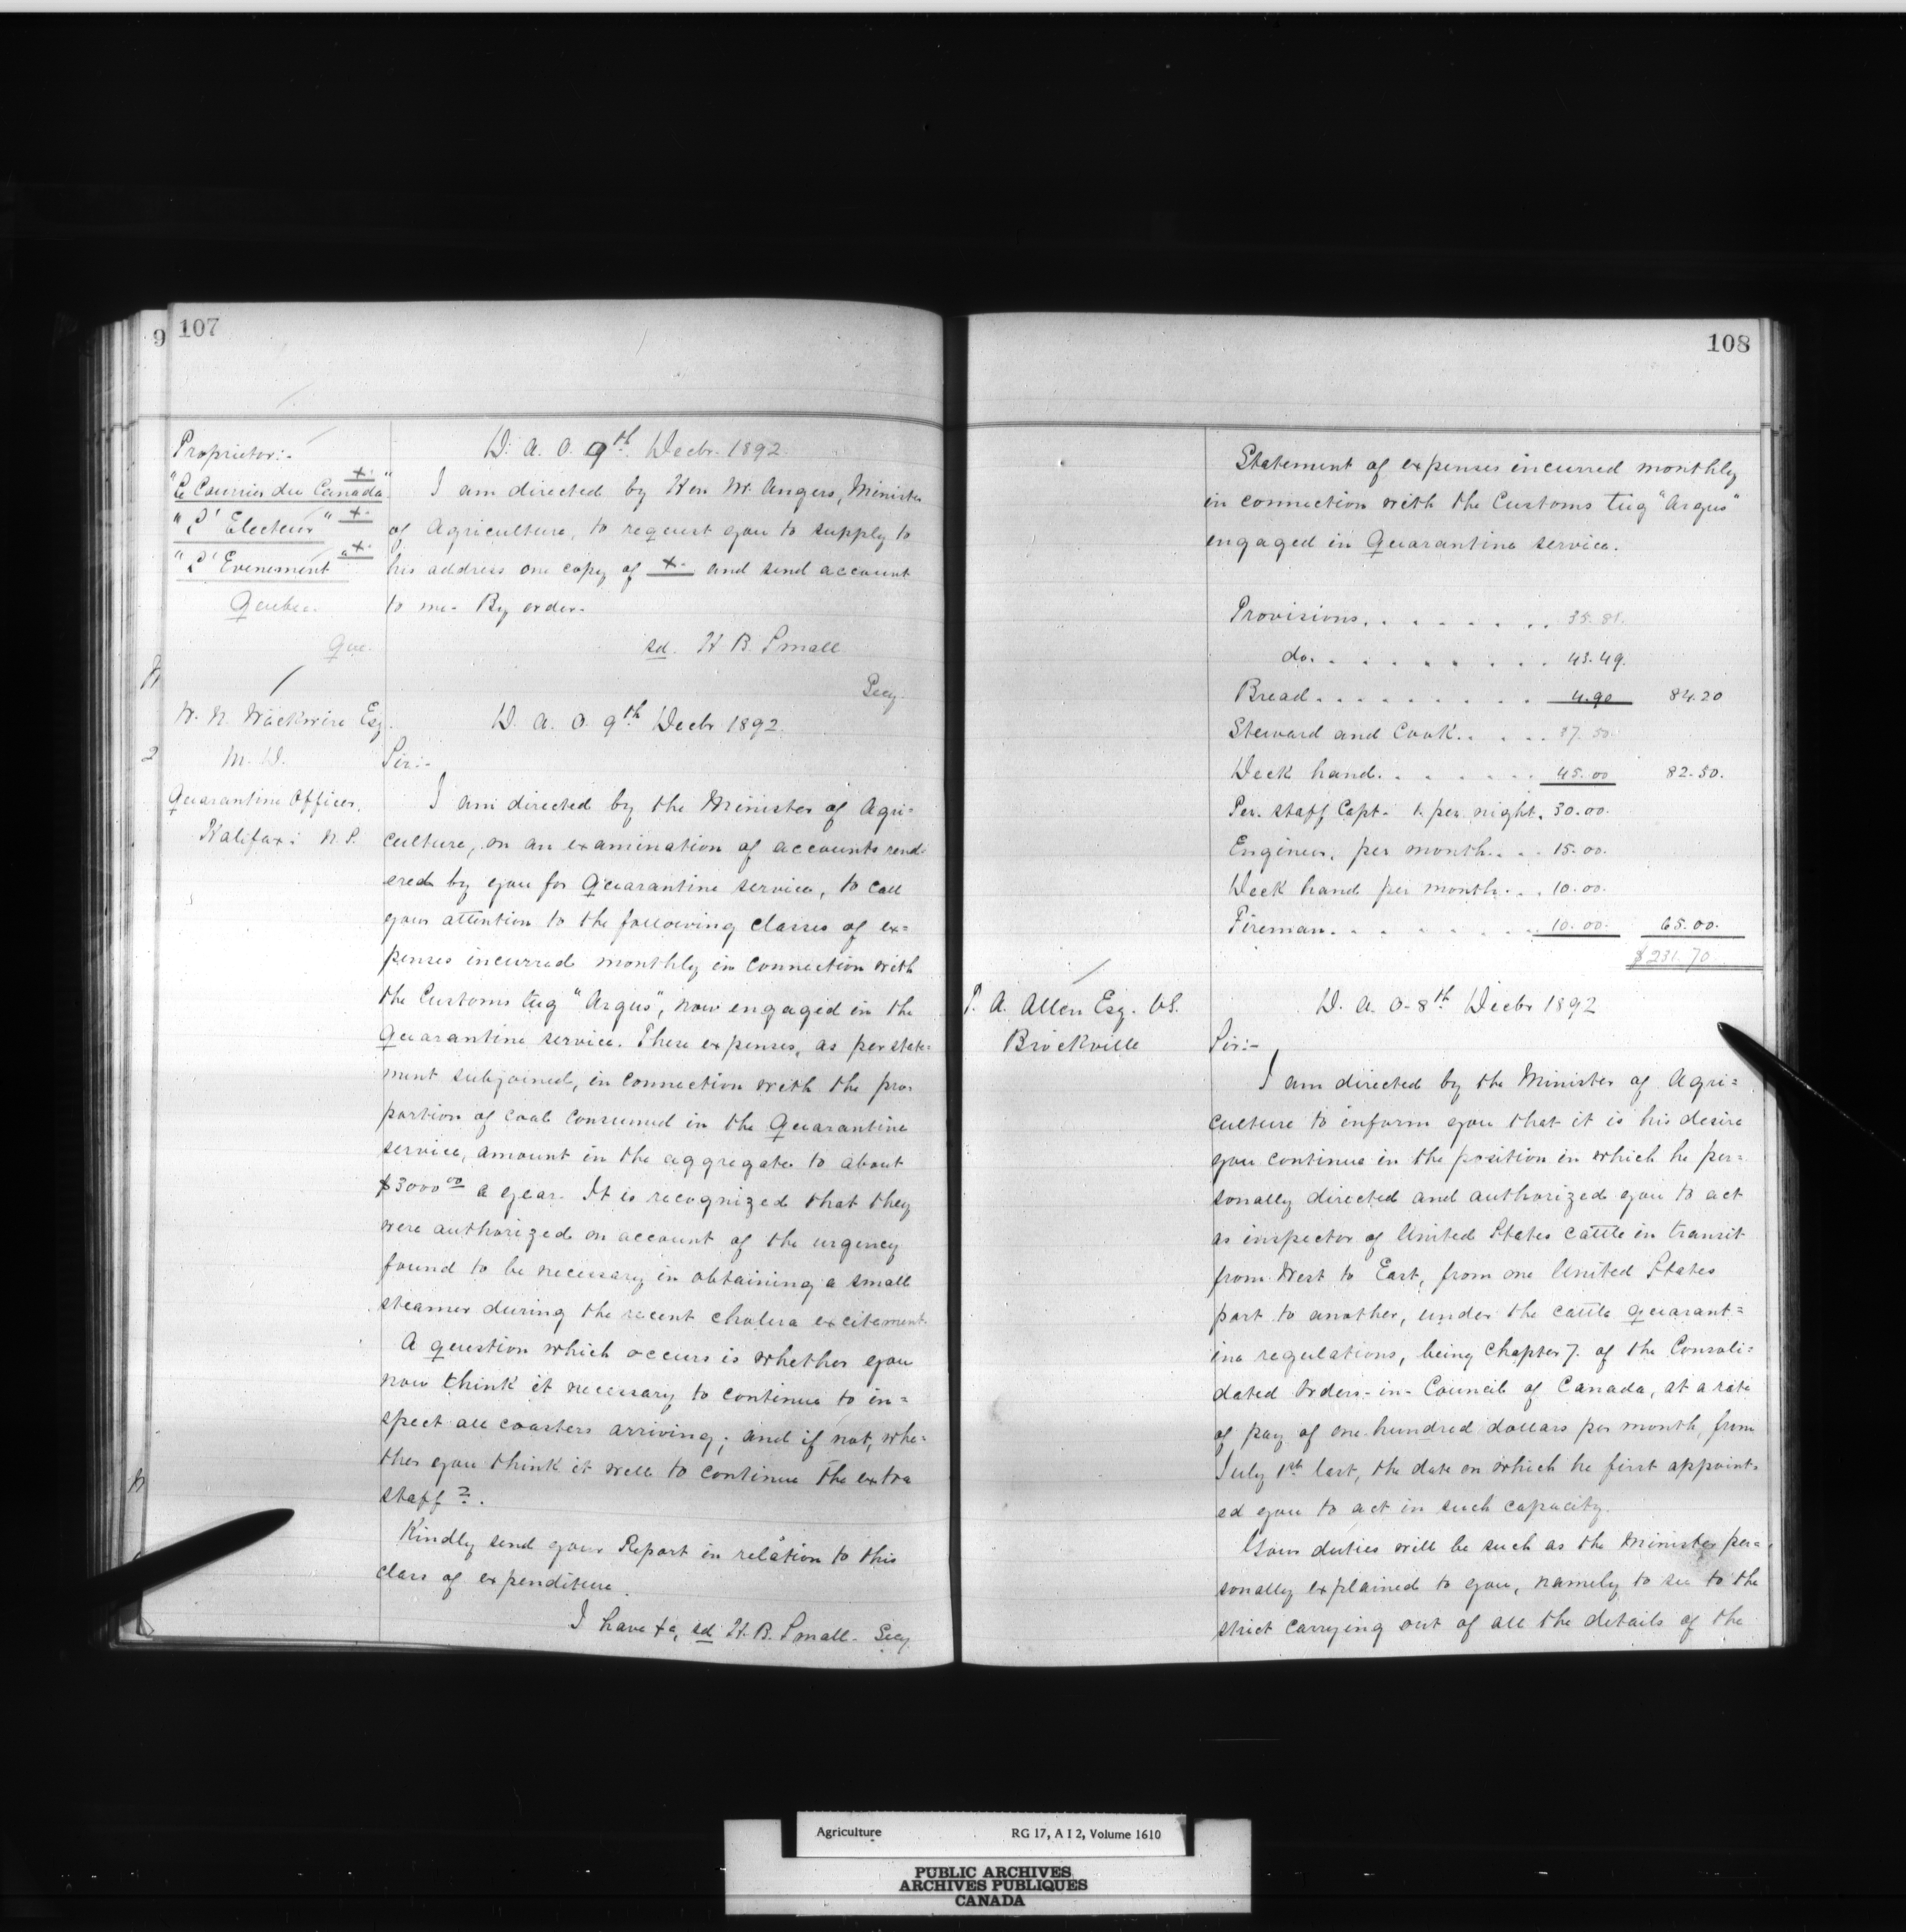 9
107
Proprietor:-
"Le Courrier du Canada" +.
"L'Electeur" +.
"L'Evenement" +.
Quebec.
Que.
D. A. O. 9th Decbr. 1892.
I am directed by Hon Mr. Angers, Minister
of Agriculture, to request you to supply to
his address one copy of +. and send account
to me. By order.
sd. H B. Small
Secy.
W. N. Wickwire Esq.
M. D.
Quarantine Officer.
Halifax: N. S.
D. A. O. 9th Decbr 1892.
Sir:-
I am directed by the Minister of Agri=
culture, on an examination of accounts rend-
ered by you for Quarantine service, to call
your attention to the following classes of ex=
penses incurred monthly in connection with
the Customs tug "Argus", now engaged in the
Quarantine service. These expenses, as per state=
ment subjoined, in connection with the pro-
portion of coal consumed in the Quarantine
service, amount in the aggregate to about
$3000 00 a year. It is recognized that they
were authorized on account of the urgency
found to be necessary in obtaining a small
steamer during the recent cholera excitement
A question which occurs is whether you
now think it necessary to continue to in=
spect all coasters arriving; and if not, whe=
ther you think it well to continue the extra
staff?.
Kindly send your Report in relation to this
class of expenditure.
I have &c, sd H. B. Small. Secy
108
Statement of expenses incurred monthly
in connection with the Customs tug "Argus"
engaged in Quarantine service.
Provisions. . . . . . . . 35.81.
do. . . . . . . . . 43.49.
Bread. . . . . . . . . 4.90 84.20
Steward and Cook. . . . . 37.50.
Deck hand. . . . . . . 45.00 82.50.
Per. staff Capt. 1. per night. 30.00.
Engineer, per month. . . . 15.00.
Deck hand per month. . . 10.00.
Fireman. . . . . . . . 10.00. 65.00.
$231.70
A. Allen Esq. V.S.
Brockville
D. A. O. 8th Decbr 1892
Sir:-
I am directed by the Minister of Agri=
culture to inform you that it is his desire
you continue in the position in which he per=
sonally directed and authorized you to act
as inspector of United States cattle in transit
from West to East, from one United States
port to another, under the cattle quarant=
ine regulations, being Chapter 7. of the Consoli=
dated Orders-in-Council of Canada, at a rate
of pay of one hundred dollars per month, from
July 1st last, the date on which he first appoint=
ed you to act in such capacity.
Your duties will be such as the Minister per=
sonally explained to you, namely to see to the
strict carrying out of all the details of the
Agriculture RG 17, A I 2, Volume 1610
PUBLIC ARCHIVES
ARCHIVES PUBLIQUES
CANADA